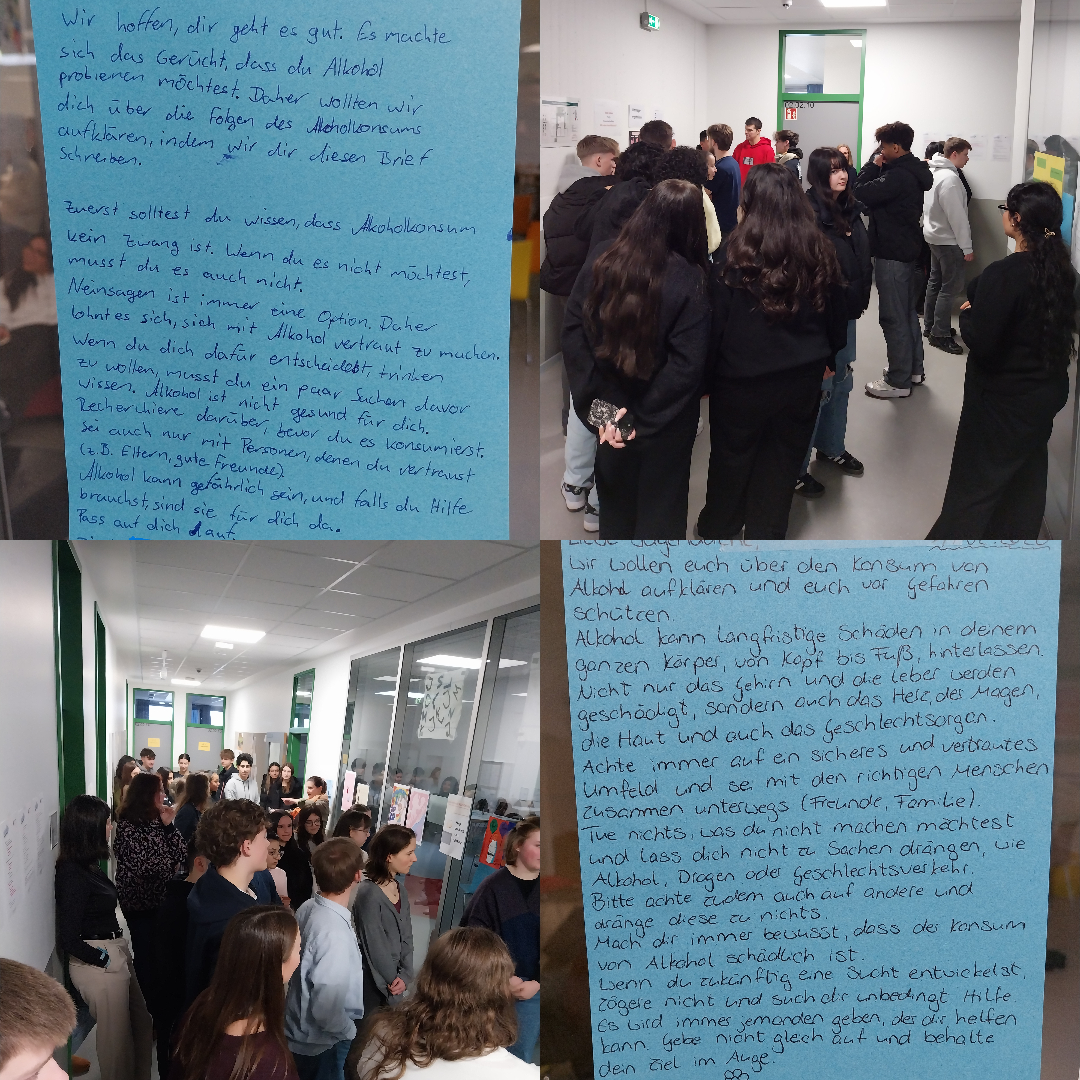 Wir hoffen, dir geht es gut. Es machte
sich das Gerücht, dass du Alkohol
probieren möchtest. Daher wollten wir
dich über die Folgen des Alkoholkonsums
aufklären, indem wir dir diesen Brief
schreiben.
Zuerst solltest du wissen, dass Alkoholkonsum
kein Zwang ist. Wenn du es nicht möchtest,
musst du es auch nicht.
Neinsagen ist immer eine Option. Daher
lohnt es sich, sich mit Alkohol vertraut zu machen.
Wenn du dich dafür entscheidest, trinken
zu wollen, musst du ein paar Sachen davor
wissen. Alkohol ist nicht gesund für dich.
Recherchiere darüber, bevor du es konsumierst.
Sei auch nur mit Personen, denen du vertraust
(z.B. Eltern, gute Freunde)
Alkohol kann gefährlich sein, und falls du Hilfe
brauchst, sind sie für dich da.
Pass auf dich auf.
Wir wollen euch über den Konsum von
Alkohol aufklären und euch vor Gefahren
schützen.
Alkohol kann langfristige Schäden in deinem
ganzen Körper, von Kopf bis Fuß, hinterlassen.
Nicht nur das Gehirn und die Leber werden
geschädigt, sondern auch das Herz, der Magen,
die Haut und auch das Geschlechtsorgan.
Achte immer auf ein sicheres und vertrautes
Umfeld und sei mit den richtigen Menschen
zusammen unterwegs (Freunde, Familie).
Tue nichts, was du nicht machen möchtest
und lass dich nicht zu Sachen drängen, wie
Alkohol, Drogen oder Geschlechtsverkehr.
Bitte achte zudem auch auf andere und
dränge diese zu nichts.
Mach dir immer bewusst, dass der Konsum
von Alkohol schädlich ist.
Wenn du zukünftig eine Sucht entwickelst,
zögere nicht und such dir unbedingt Hilfe.
Es wird immer jemanden geben, der dir helfen
kann. Gebe nicht gleich auf und behalte
dein Ziel im Auge.